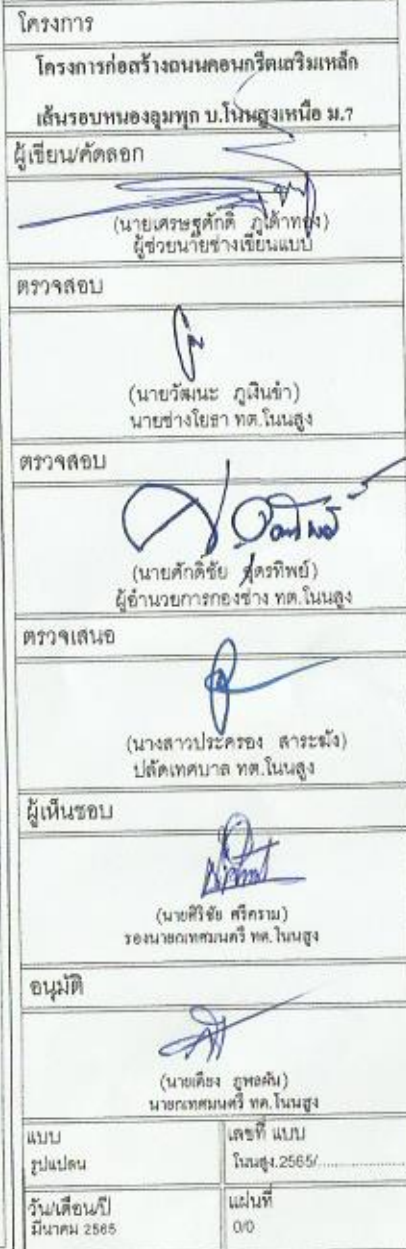 โครงการ
โครงการก่อสร้างถนนคอนกรีตเสริมเหล็ก
เส้นรอบหนองอุมพุก บ.โนนสูงเหนือ ม.7
ผู้เขียน/คัดลอก
(นายเศรษฐศักดิ์ ภูเต้าทอง)
ผู้ช่วยนายช่างเขียนแบบ
ตรวจสอบ
(นายวัฒนะ ภูเงินขำ)
นายช่างโยธา ทต.โนนสูง
ตรวจสอบ
(นายศักดิ์ชัย อุตรทิพย์)
ผู้อำนวยการกองช่าง ทต.โนนสูง
ตรวจเสนอ
(นางสาวประครอง สาระฆัง)
ปลัดเทศบาล ทต.โนนสูง
ผู้เห็นชอบ
(นายศิริชัย ศรีคราม)
รองนายกเทศมนตรี ทต.โนนสูง
อนุมัติ
(นายเคียง ภูพลผัน)
นายกเทศมนตรี ทต.โนนสูง
แบบ
รูปแปลน
เลขที่ แบบ
โนนสูง.2565/....................
วัน/เดือน/ปี
มีนาคม 2565
แผ่นที่
0/0